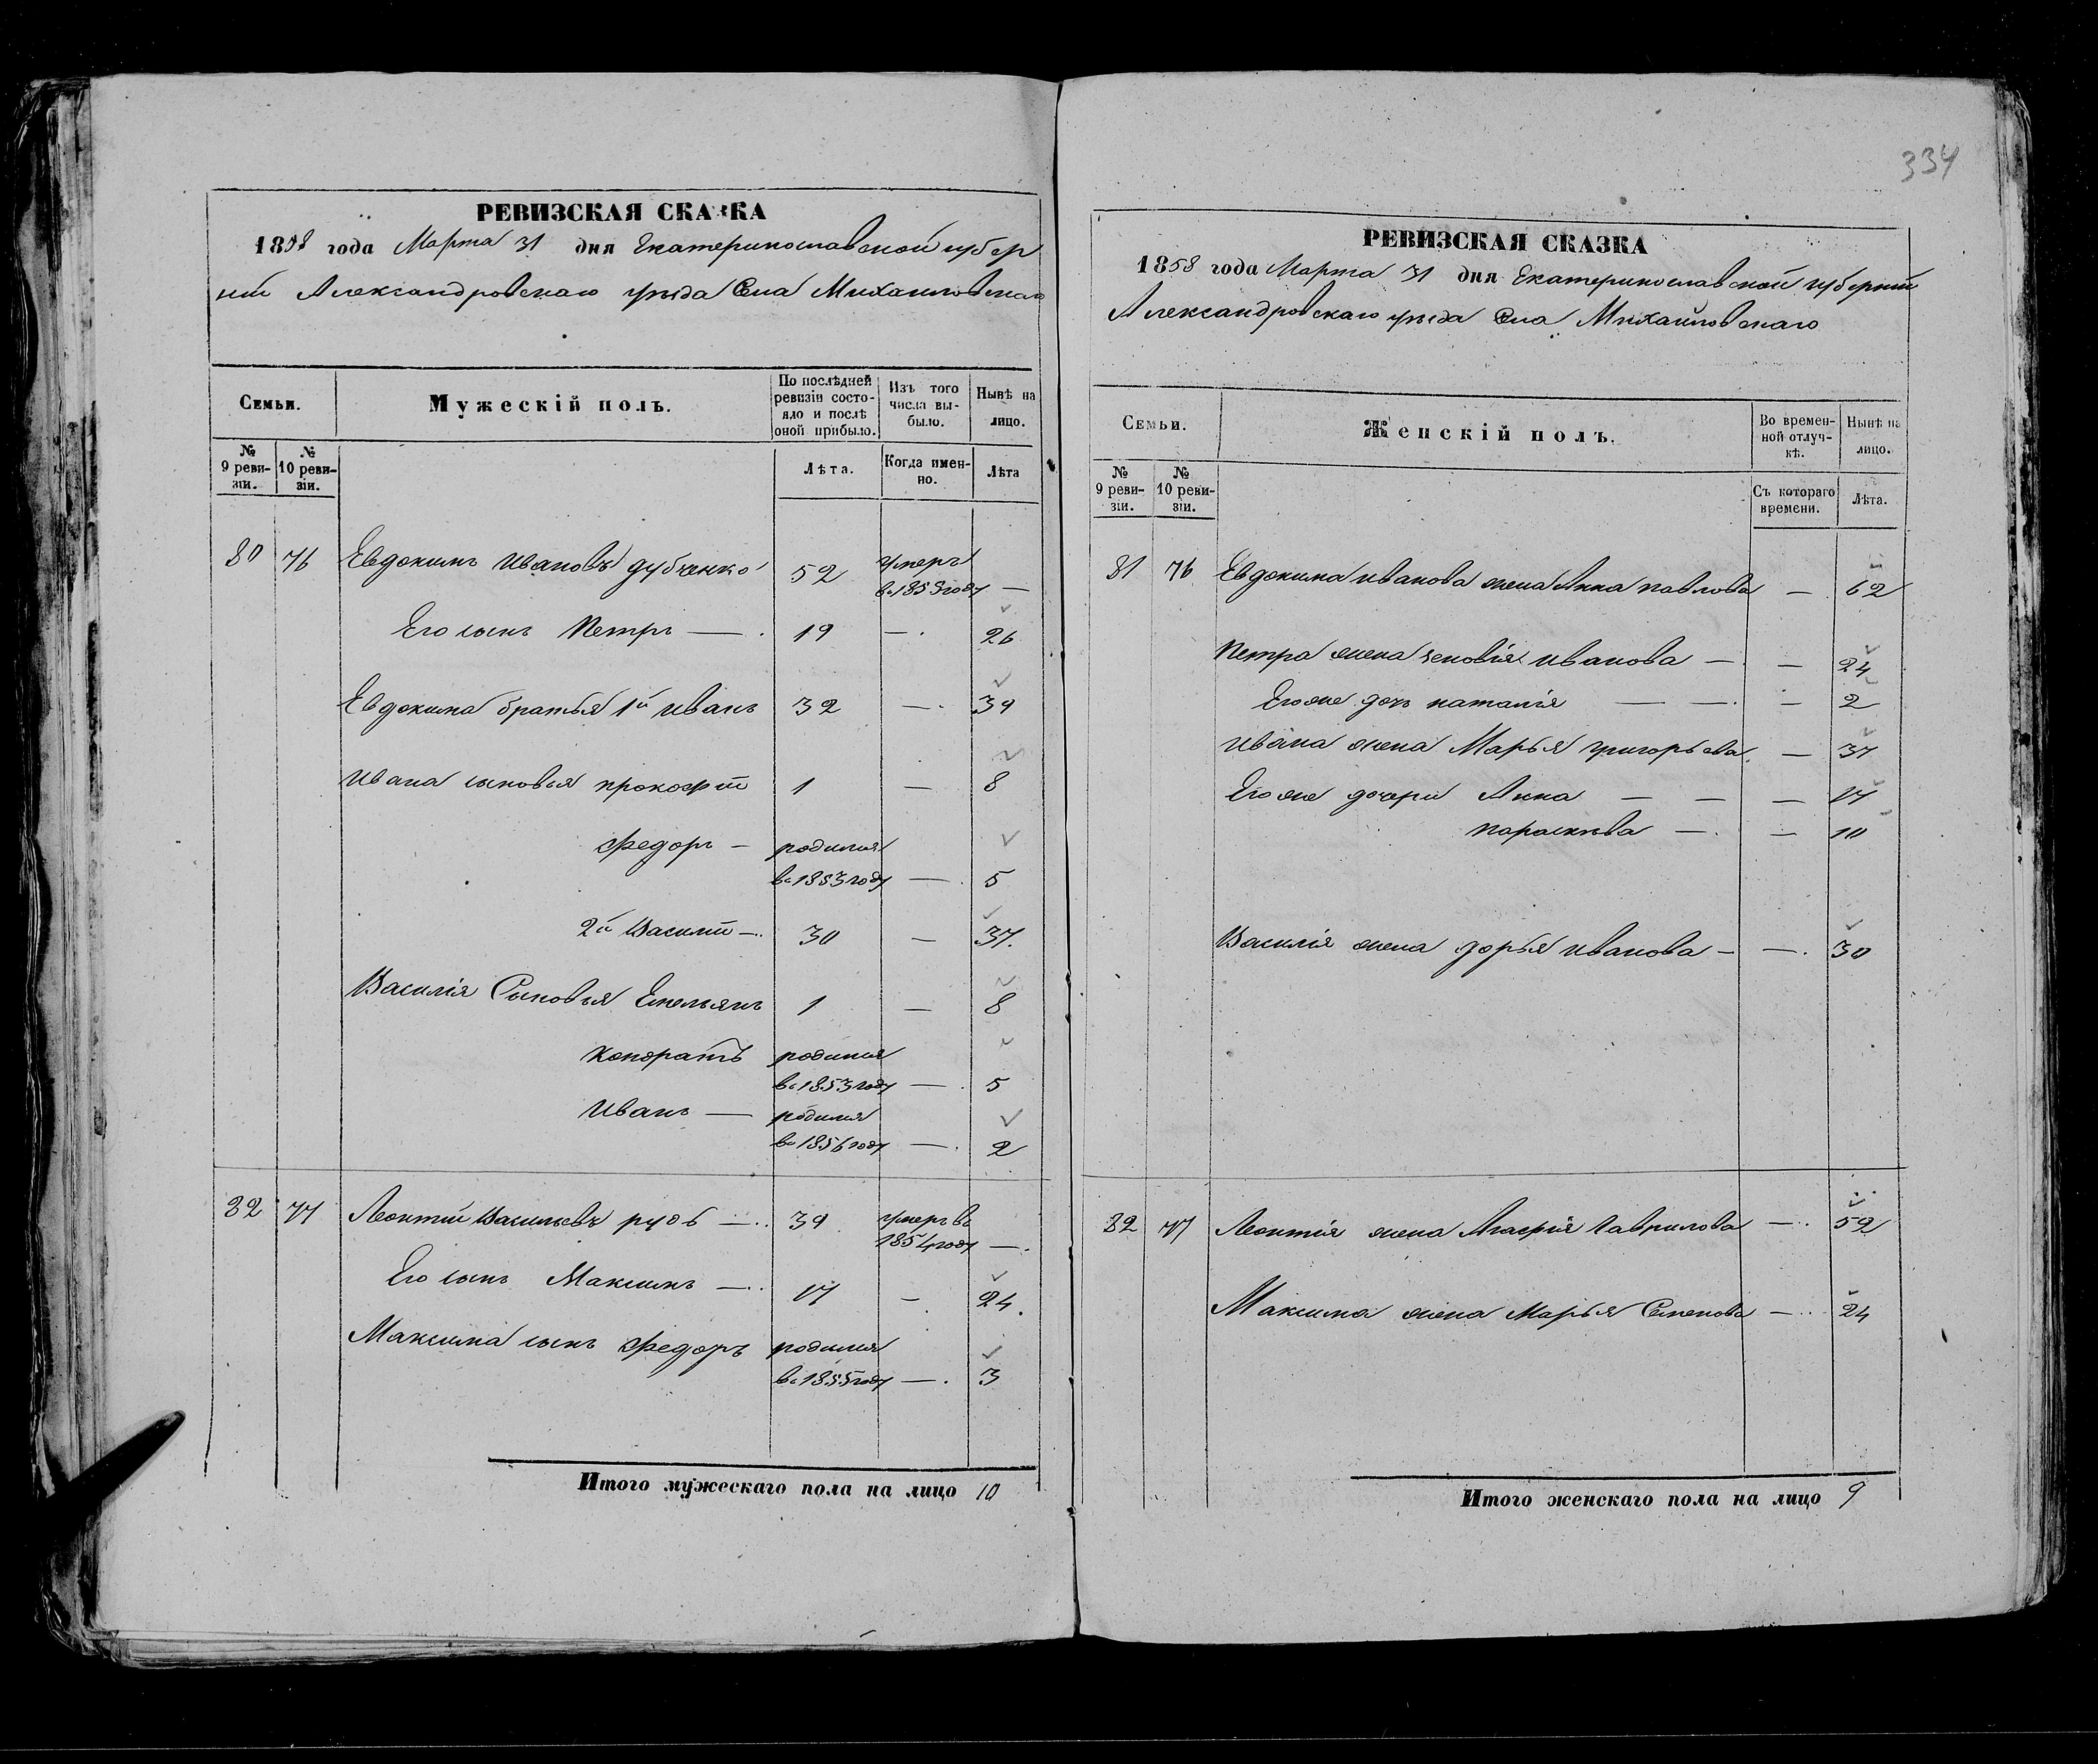 334
РЕВИЗСКАЯ СКАЗКА
1858 года Марта 31 дня Екатеринославской губер
нии Александровскаго уезда Села Михайловскаго
Семьи.
Мужескій полъ.
По послѣдней ревизіи состояло и послѣ оной прибыло.
Изъ того числа выбыло.
Нынѣ на лицо.
№ 9 ревизіи.
№ 10 ревизіи.
Лѣта.
Когда именно.
Лѣта
80 76 Евдокимъ Ивановъ Дубченко 52 умеръ
в 1853 году —
Его сынъ Петръ — 19 — 26
Евдокима братья 1й Иванъ 32 — 39
Ивана сыновья Прокофий 1 — 8
Федоръ — родился
в 1853 году — 5
2й Василий — 30 — 37.
Василія Сыновья Емельянъ 1 — 8
Кондратъ родился
в 1853 году — 5
Иванъ — родился
в 1856 году — 2
82 77 Леонтий Васильевъ 39 умеръ в
1854 году —
Его сынъ Максимъ — 17 — 24.
Максима сынъ Федоръ родился
в 1855 году — 3
Итого мужескаго пола на лицо 10
РЕВИЗСКАЯ СКАЗКА
1858 года Марта 31 дня Екатеринославской губернии
Александровскаго уезда Села Михайловскаго
Семьи.
Женскій полъ.
Во временной отлучкѣ.
Нынѣ на лицо.
№ 9 ревизіи.
№ 10 ревизіи.
Съ котораго времени.
Лѣта.
81 76 Евдокима Иванова жена Анна Павлова — 62
Петра жена Зеновія Иванова — — 24
Его же дочь Наталія — — — 2
Ивана жена Марья Григорьева — 37
Его же дочери Анна — — — 17
Параскева — — 10
Василія жена Дарья Иванова — — 30
82 77 Леонтія жена Агафія Гаврилова — 52
Максима жена Марья Семенова — 24
Итого женскаго пола на лицо 9